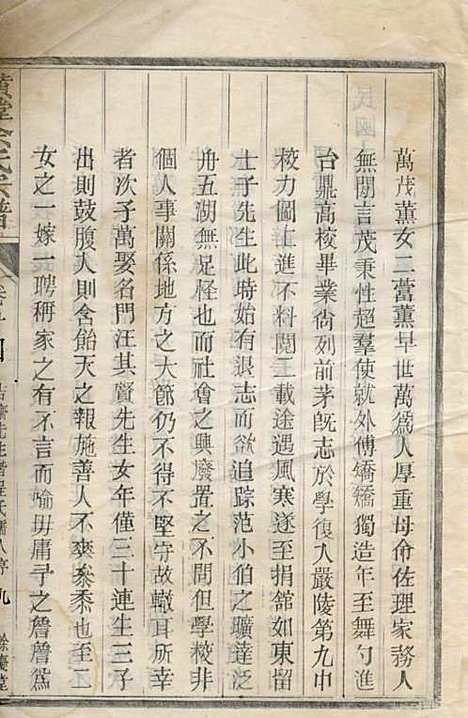 萬茂薰女二蕾薰早世萬為人厚重母命佐理家務人
無閒言茂秉性超羣使就外傅矯矯獨造年至舞勺進
台鼎高校畢業尙列前茅旣志於學復入嚴陵第九中
校力圖上進不料閱二載途遇風寒遂至捐舘如東留
士子先生此時始有退志而欲追踪范小伯之曠達泛
舟五湖無足怪也而社會之興廢置之不問但學校非
個人事關係地方之大節仍不得不堅守故轍耳所幸
者次子萬娶名門汪其賢先生女年僅三十連生三子
出則鼓腹入則含飴天之報施善人不爽黍黍也至二
女之一嫁一聘稱家之有不言而喻毋庸予之詹詹為
宗譜
九
餘慶堂
民國